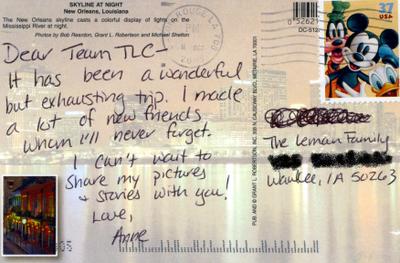 SKYLINE AT NIGHT
New Orleans, Louisiana
The New Orleans skyline casts a colorful display of lights on the
Mississippi River at night.
Photos by Bob Reardon, Grant L. Robertson and Michael Shelton
Dear Team TLC-
It has been a wonderful
but exhausting trip. I made
a lot of new friends
whom I'll never forget.
I can't wait to
share my pictures
& stories with you!
Love,
Anne
PUB. AND © GRANT L. ROBERTSON, INC. 300 N. CAUSEWAY BLVD. METAIRIE, LA 70001
052621
DC-512
37
USA
The Leman Family
Waukee, IA 50263